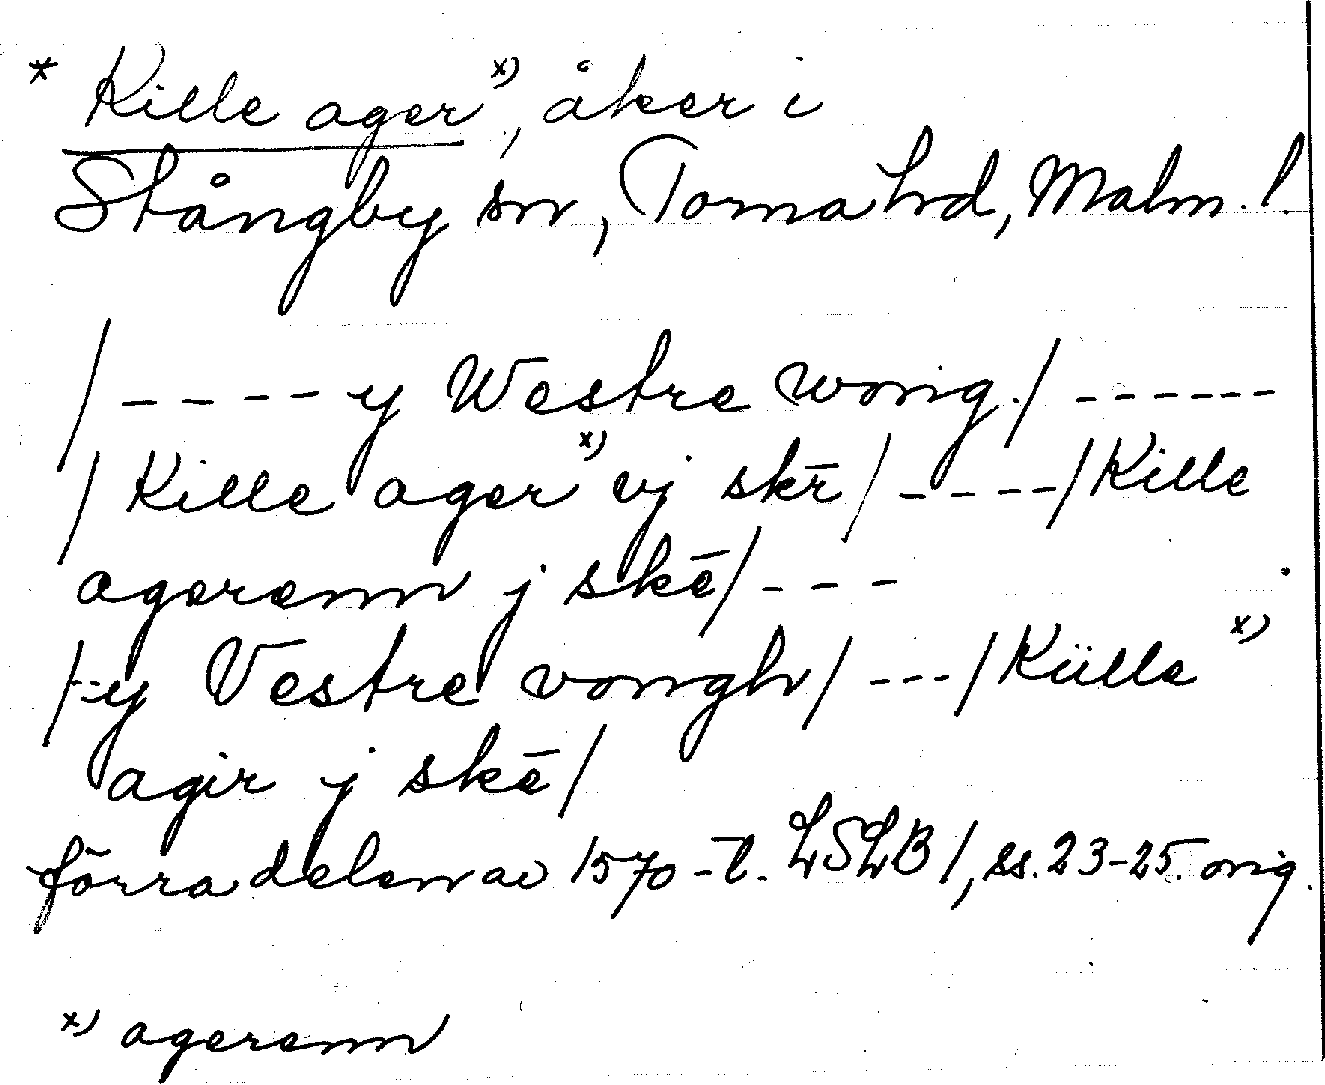 * Kille ager x), åker i
Stångby sn, Torna hrd, Malm. l.
/ - - - - y Westre wong. / - - - - - -
/ Kille ager x) vj skē / - - - - / Kille
agerenn j skē / - - -
/ - - y Vestre vongh / - - - / Külle x)
agir j skē /
förra delen av 1570-t. LSLB 1, ss. 23-25. orig.
x) agerenn